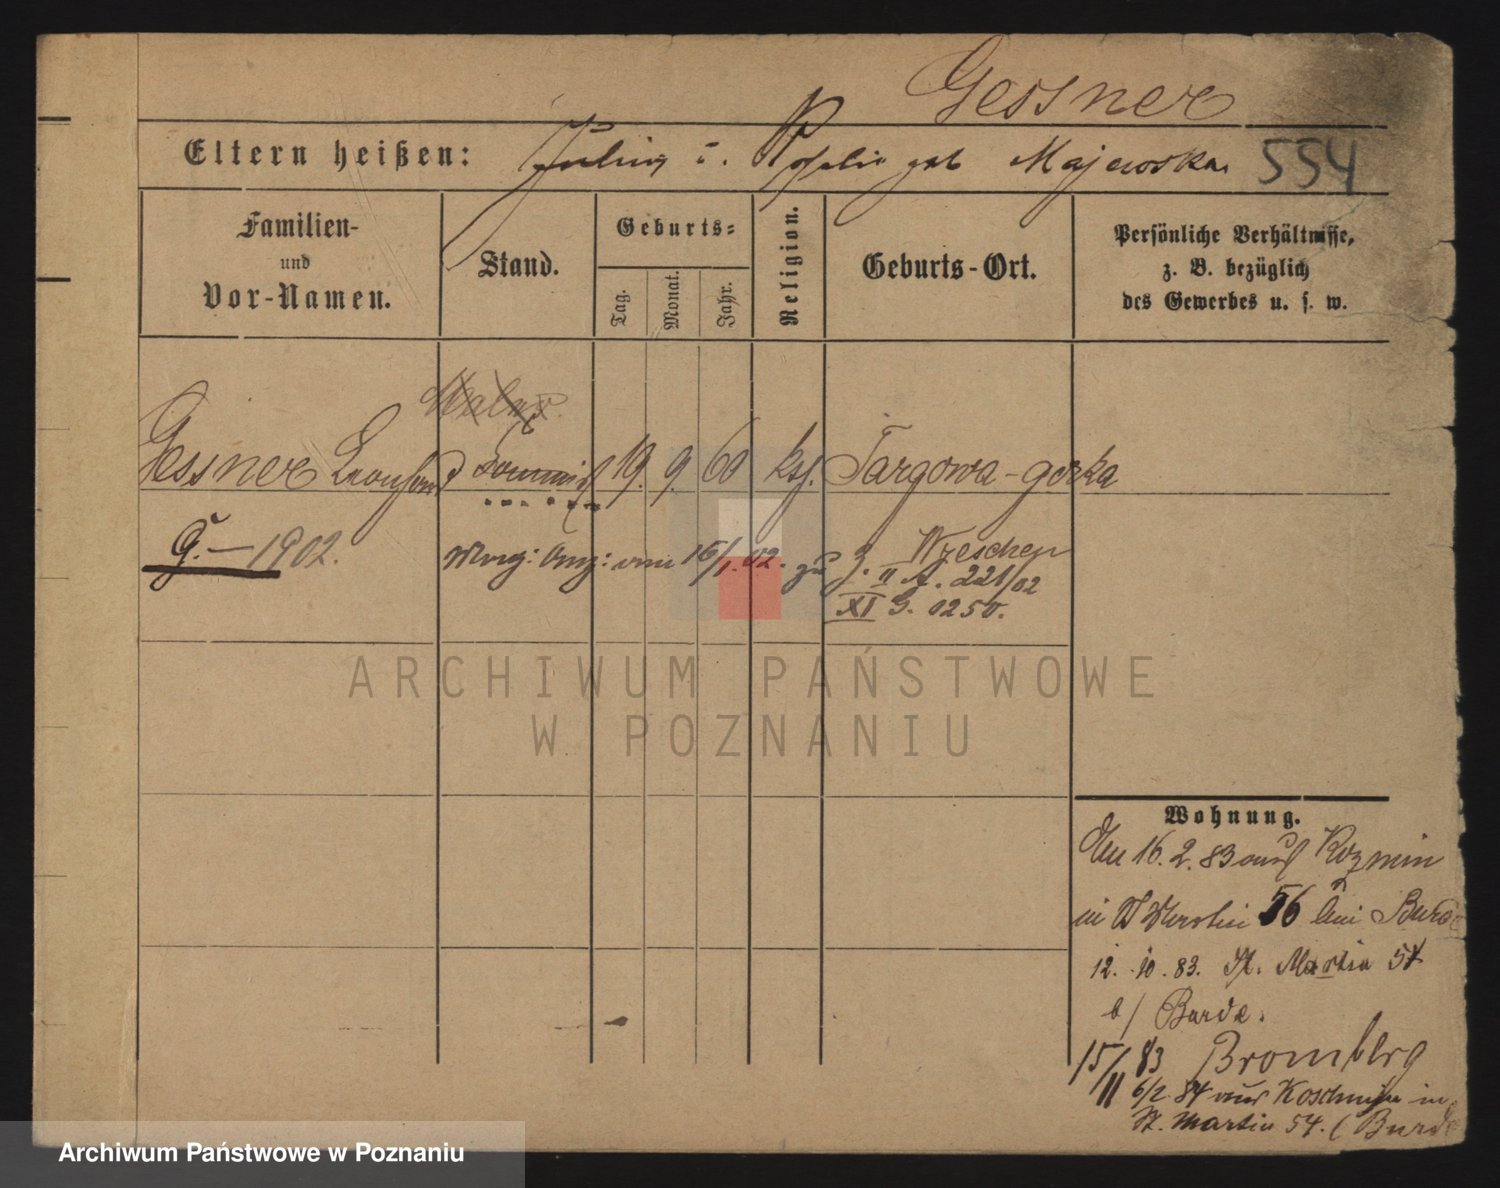 Gessner
Eltern heißen: Julius u. Rosalie geb Majewska.
554
Familien-
und
Vor-Namen.
Stand.
Geburts-
Tag.
Monat.
Jahr.
Religion.
Geburts-Ort.
Persönliche Verhältnisse,
z. B. bezüglich
des Gewerbes u. s. w.
Maler
Gessner 19. 9. 60 kth. Targowa-gorka
G. — 1902.
16/1. 02. zu J. Wreschen
II A. 221/02
XI G. 0250.
Wohnung.
16. 2. 83 aus Kozmin
in St Martin 56 bei Burde
12. 10. 83. St. Martin 54
b/ Burde.
15/11 83 Bromberg
6/2 84 aus Koschmin in
St. Martin 54. (Burde
ARCHIWUM PAŃSTWOWE
W POZNANIU
Archiwum Państwowe w Poznaniu